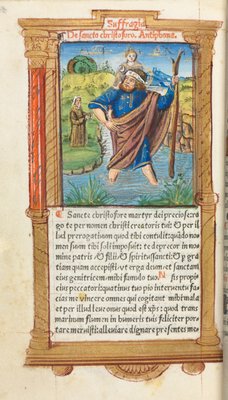 Suffragia
De sancto christoforo. Antiphona.
Sancte christofore martyr dei preciose ro
go te per nomen christi creatoris tui: & per il
lud prerogatiuum quod tibi contulit: quãdo no
men suum tibi soli imposuit: te deprecor in no
mine patris & filii: & spiritussancti: & p grã
tiam quam accepisti: vt erga deum: et sanctam
eius genitricem mihi famulo tuo. N sis propici
us peccatori: quatinus tuo pio interuentu fa
cias me vincere omnes qui cogitant mihi mala
et per illud leue onus quod est xp̃s: quod trans
marinum flumen in humeris tuis feliciter por
tare meruisti: alleuiare dignare presentes me